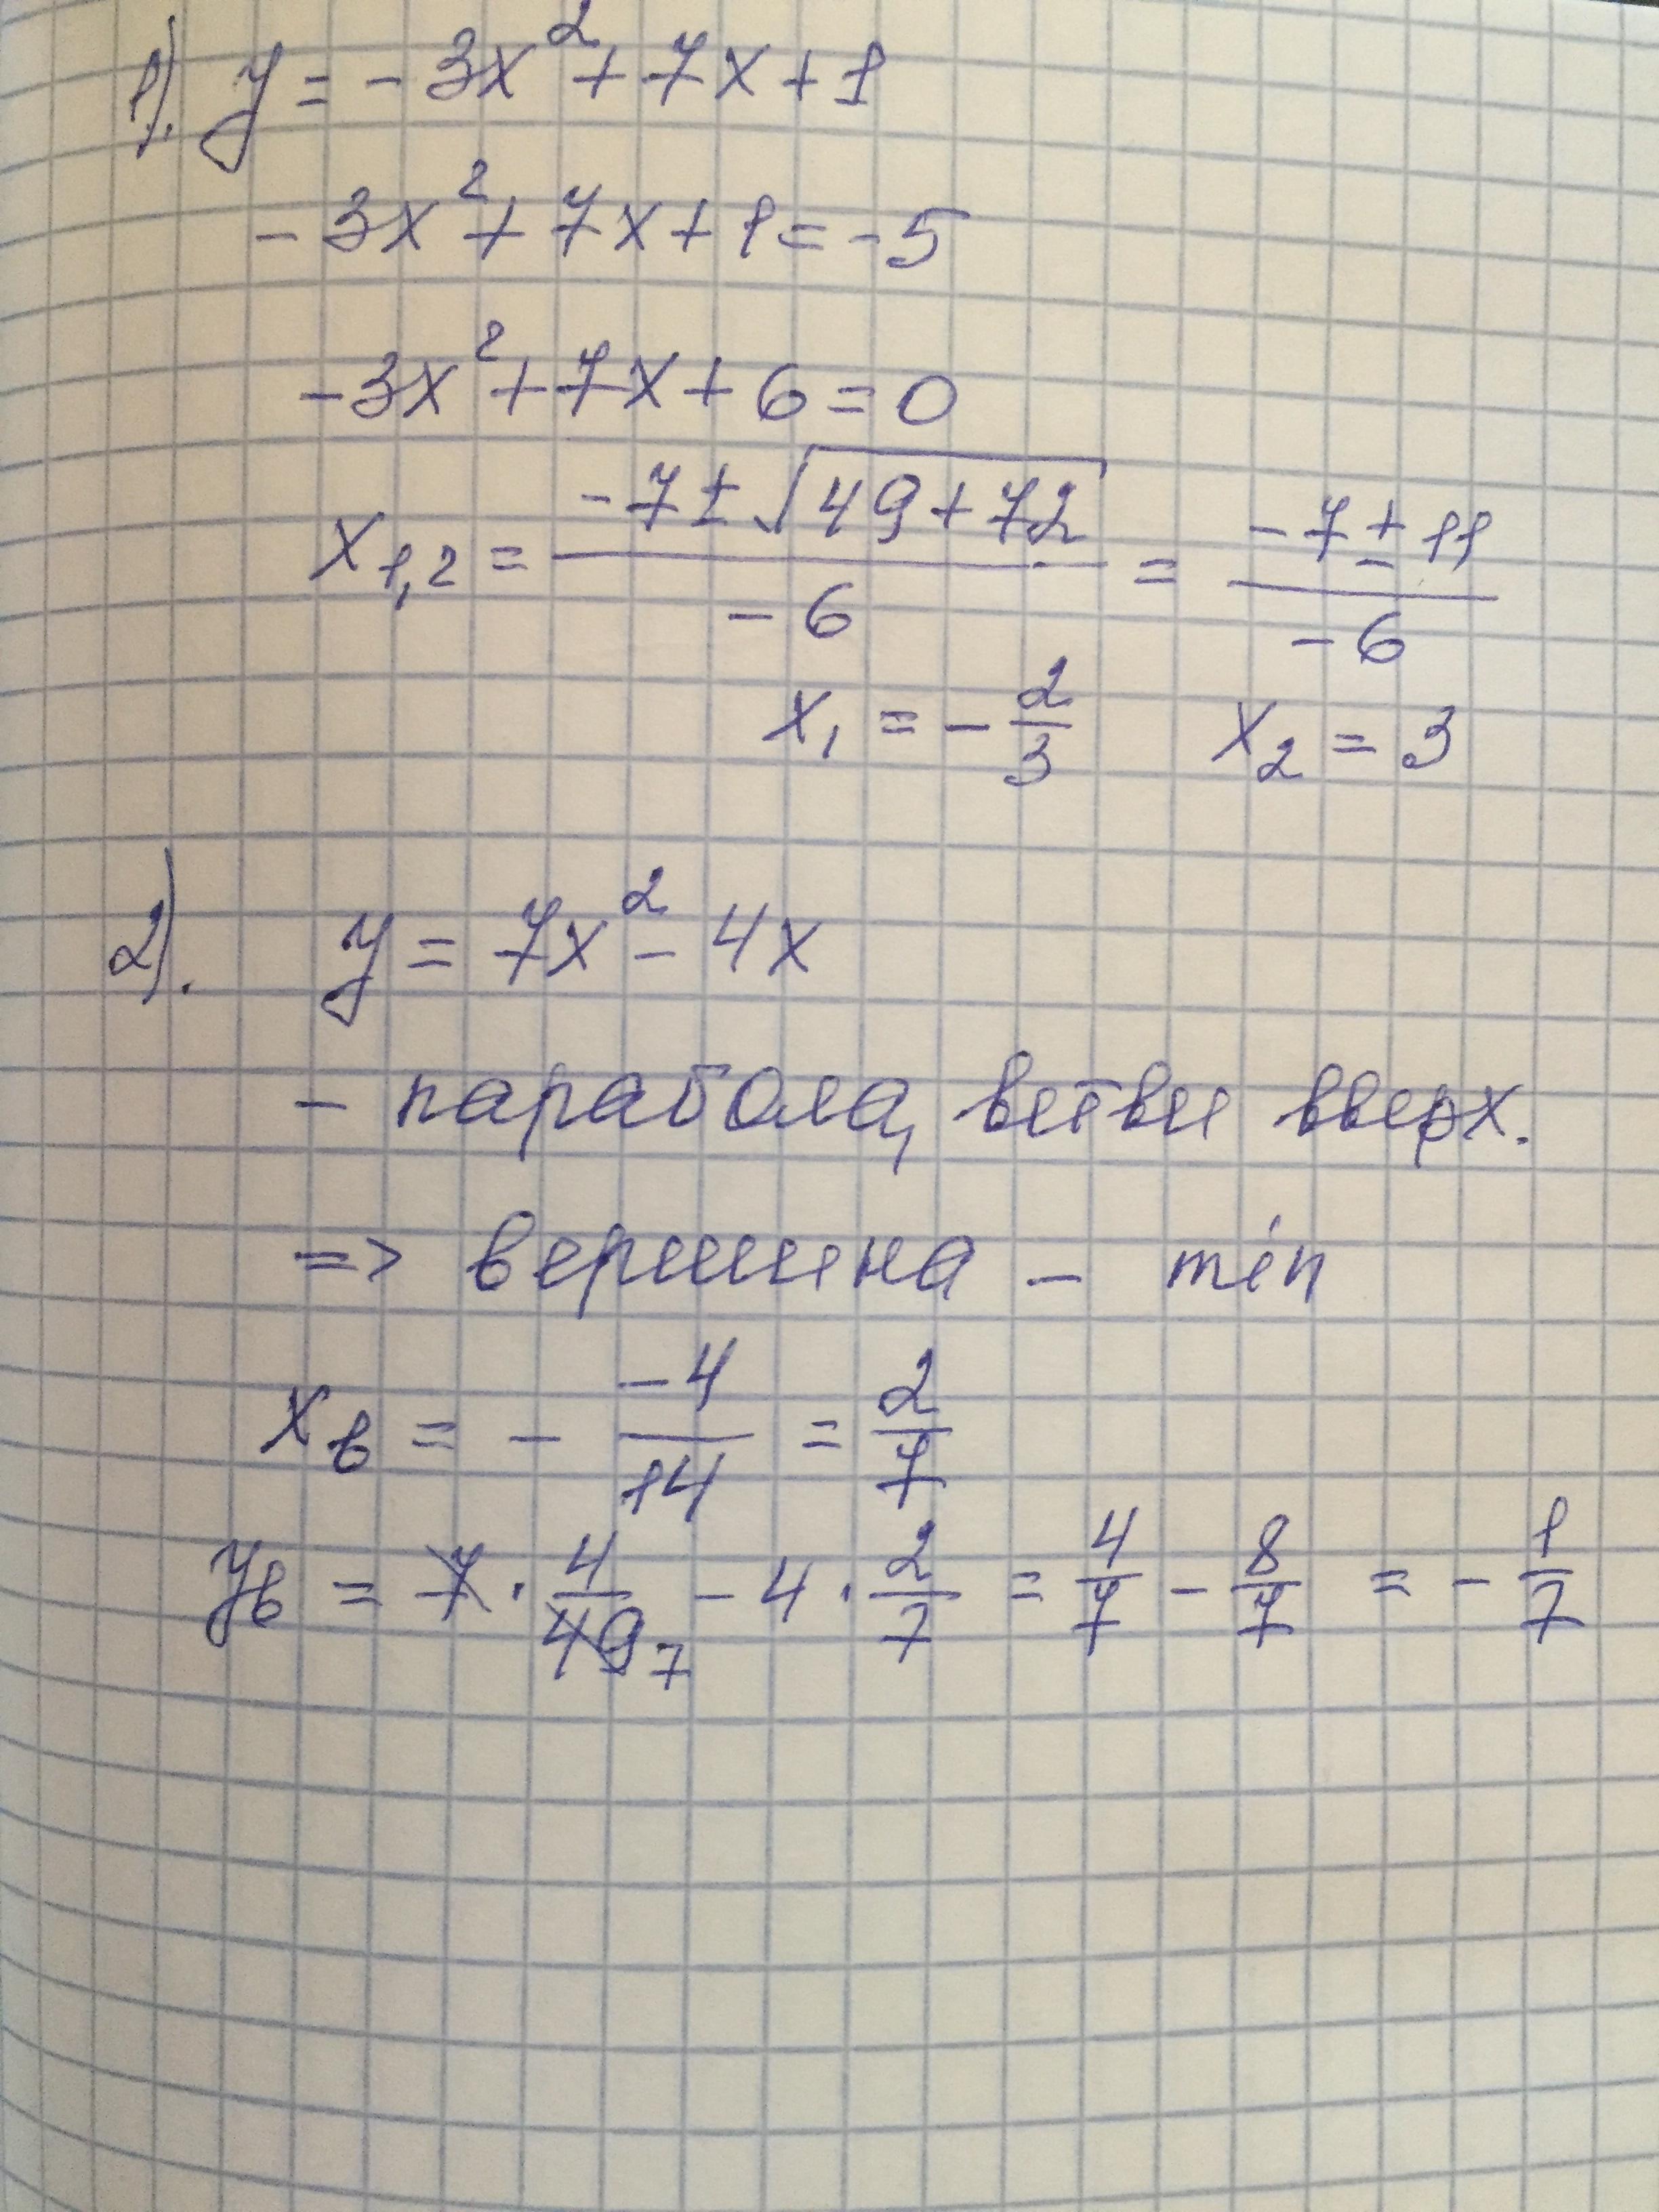 1). y = -3x² + 7x + 1
-3x² + 7x + 1 = -5
-3x² + 7x + 6 = 0
x₁,₂ = (-7 ± √(49 + 72)) / -6 = (-7 ± 11) / -6
x₁ = -2/3 x₂ = 3
2). y = 7x² - 4x
- парабола, ветви вверх.
=> вершина - min
xв = - (-4)/14 = 2/7
yв = 7 · 4/49 7 - 4 · 2/7 = 4/7 - 8/7 = - 1/7